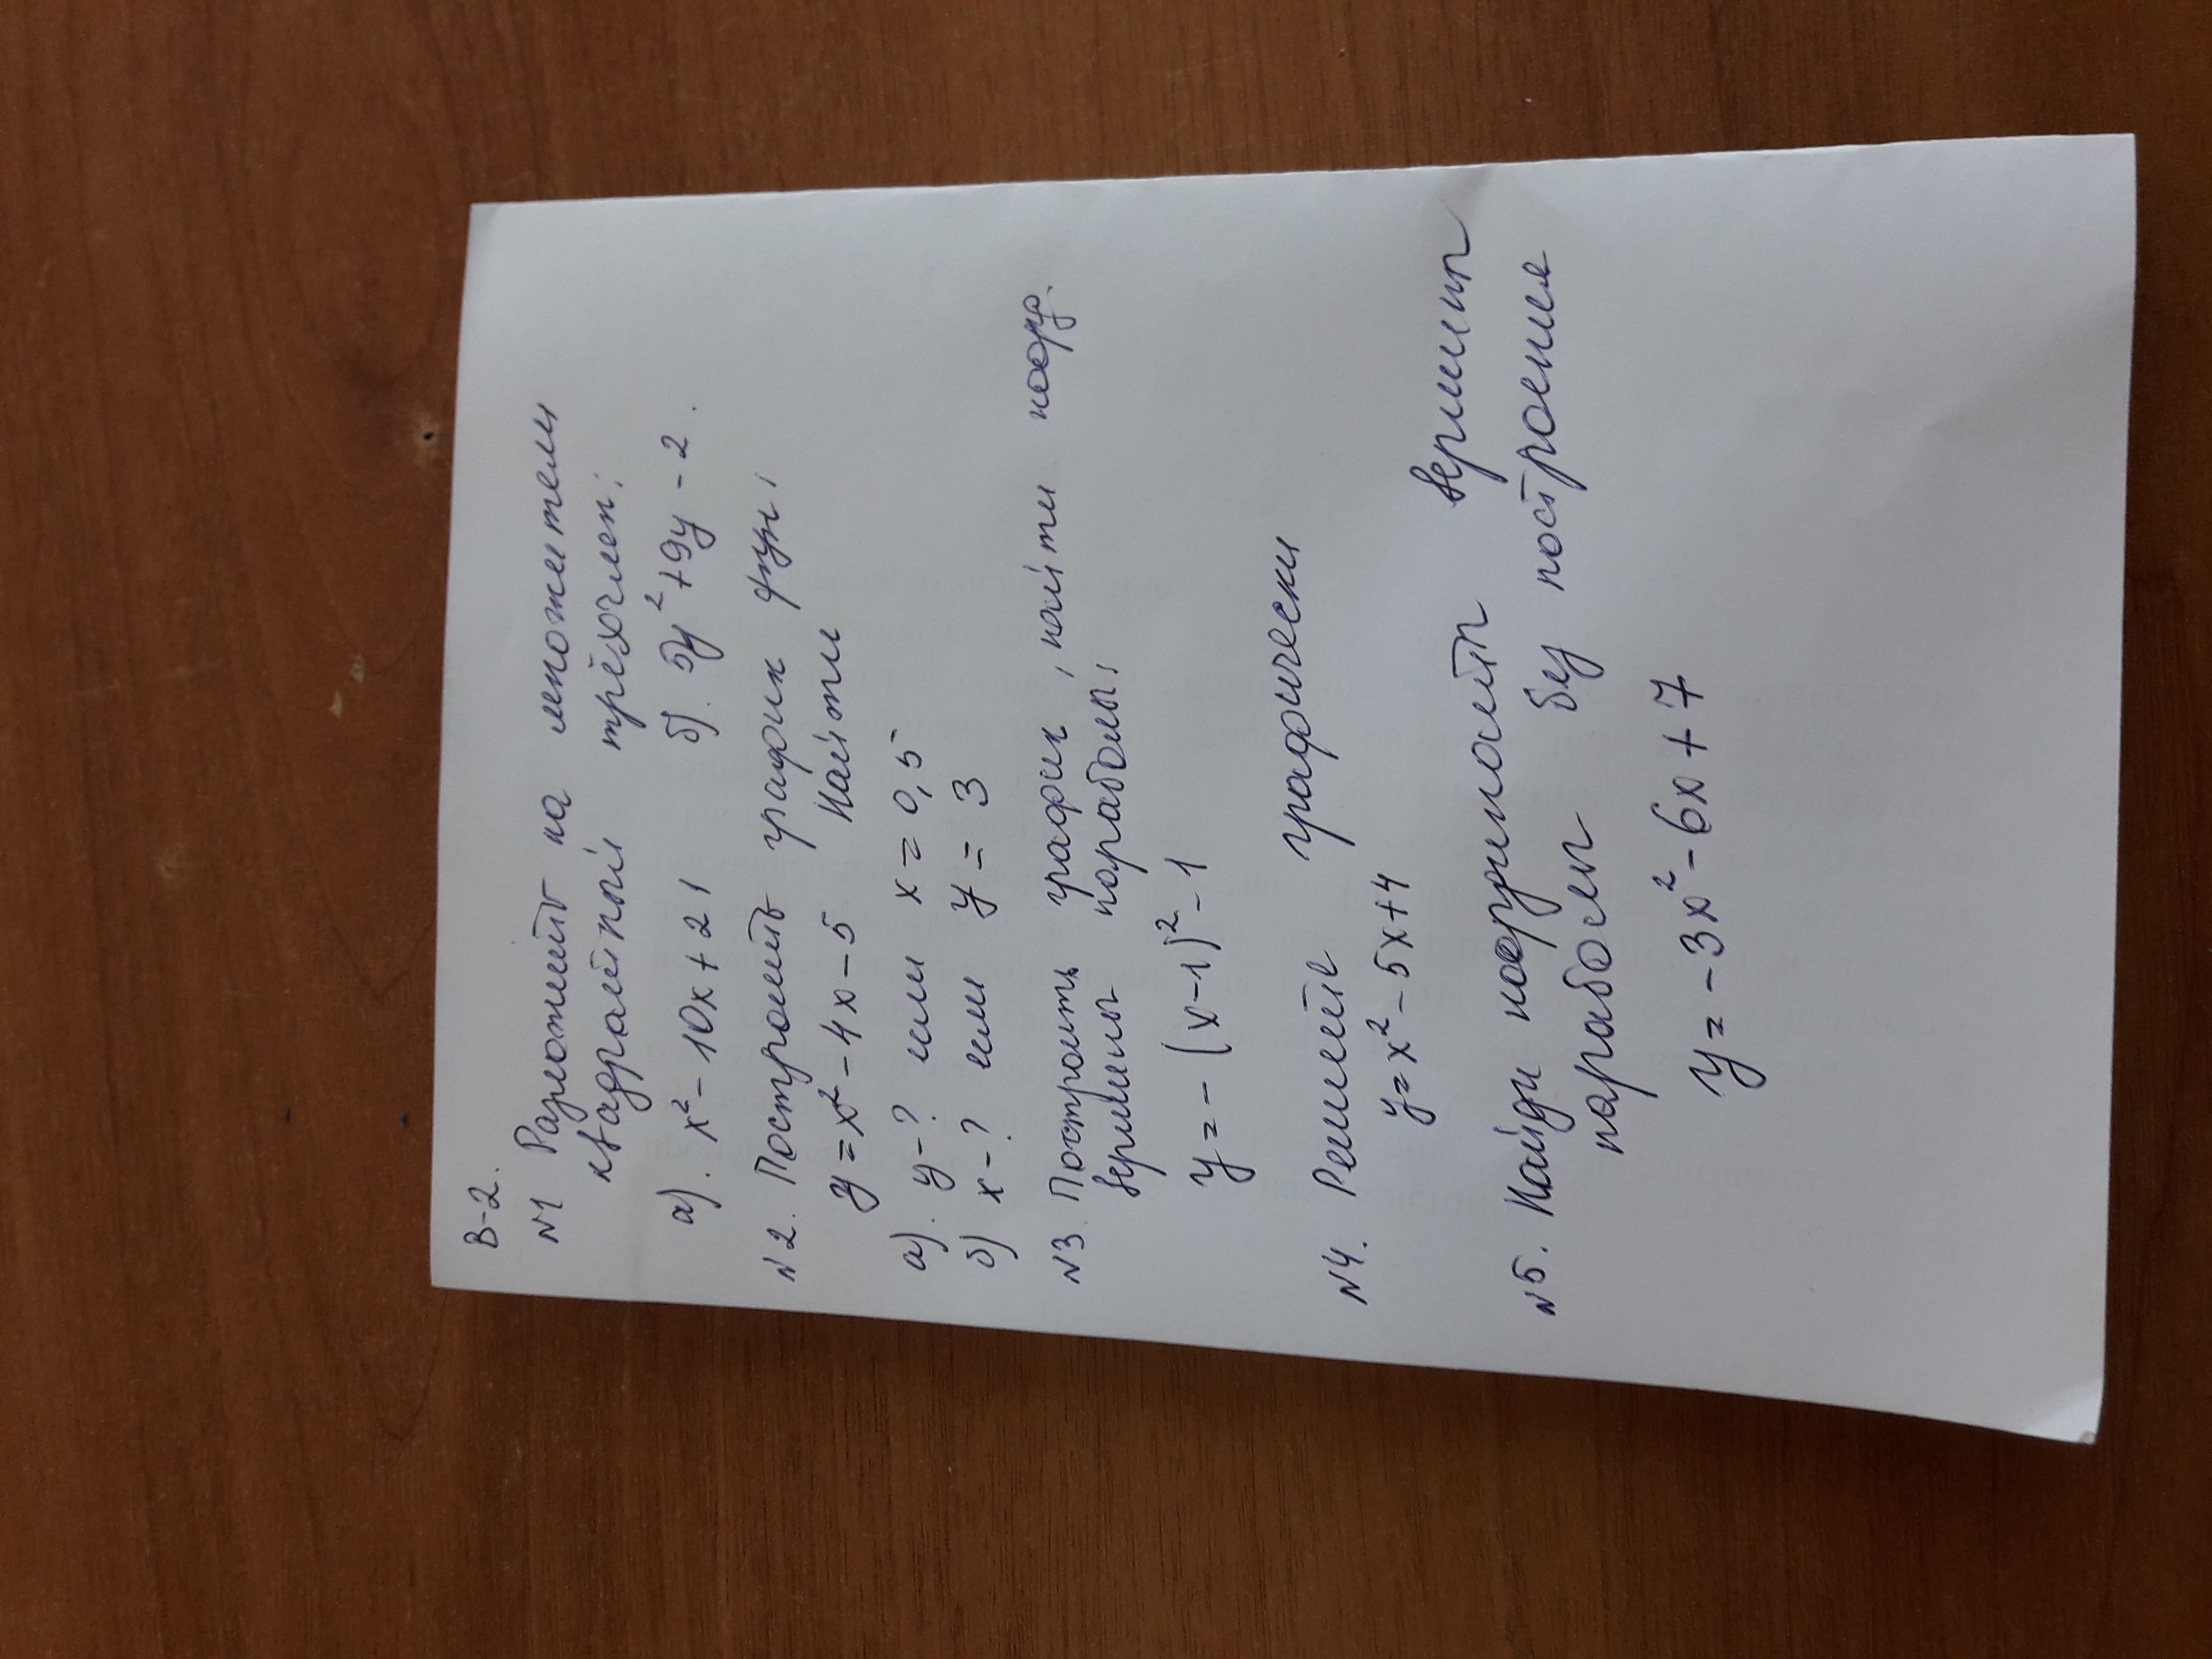 В-2.
N1 Разложить на множители
квадратный трёхчлен:
а). x² - 10x + 21 б). 5y² + 9y - 2.
N2. Построить график функ:
y = x² - 4x - 5 Найти
а). y - ? если x = 0,5
б) x - ? если y = 3
N3. Построить график, найти коорд.
вершины параболы:
y = - (x - 1)² - 1
N4. Решите графически
y = x² - 5x + 4
N5. Найди координаты вершины
параболы без построения
y = -3x² - 6x + 7